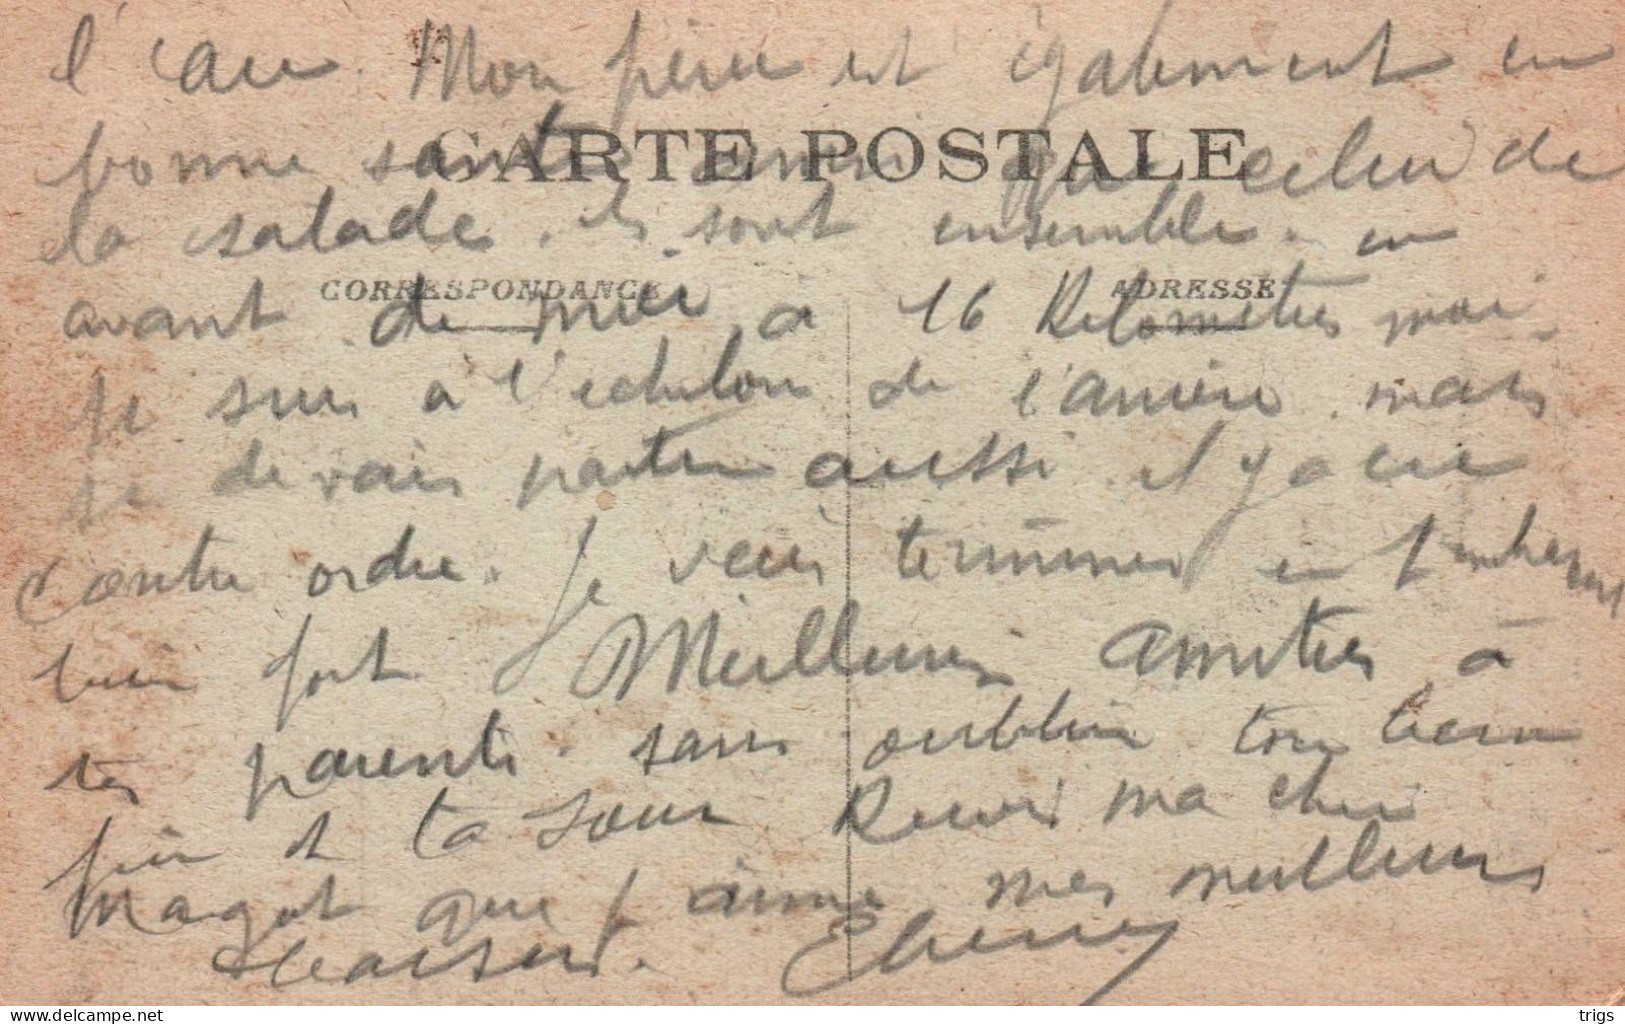 l'eau. Mon père est également en
CARTE POSTALE
bonne santé ainsi que celui de
la salade. ils sont ensemble. en
CORRESPONDANCE ADRESSE
avant de moi, à 16 Kilomètres moi
je suis à l'echelon de l'arrière. mais
je devais partir aussi il y a eu
contre ordre. Je veux terminer en t'embrassant
bien fort Meilleures amitiés à
tes parents. sans oublier ton beau
frère et ta sœur Recois ma cher
Magot que j'aime mes meilleurs
baisers. Etienne
trigs